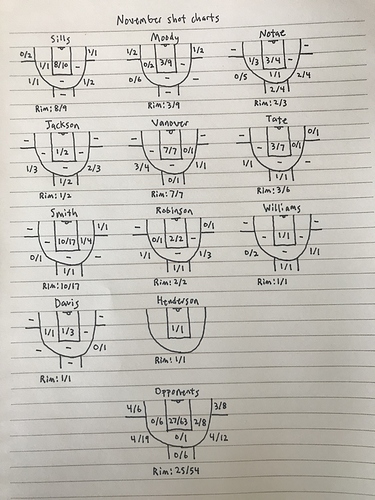 November shot charts
Sills Moody Notae
0/2 1/1 1/2 1/2 - -
1/1 8/10 - 0/2 3/9 - 1/3 3/4 -
1/1 - 1/2 0/6 - - 0/5 1/1 2/4
- - 2/4
Rim: 8/9 Rim: 3/9 Rim: 2/3
Jackson Vanover Tate
- - - - - 0/1
- 1/2 - - 7/7 0/1 - 3/7 0/1
1/3 - 2/3 3/4 - 1/1 1/1 - 1/1
1/2 0/1 1/1
Rim: 1/2 Rim: 7/7 Rim: 3/6
Smith Robinson Williams
- 1/1 - 0/1 - -
- 10/17 1/4 0/1 2/2 - - 1/1 -
0/1 - 1/1 1/1 - 1/3 0/2 - 1/1
1/1 1/1 1/1
Rim: 10/17 Rim: 2/2 Rim: 1/1
Davis Henderson
- -
1/1 1/3 - 1/1
- - 0/1
-
Rim: 1/1 Rim: 1/1
Opponents
4/6 3/8
0/6 27/63 2/8
4/19 0/1 4/12
0/6
Rim: 25/54